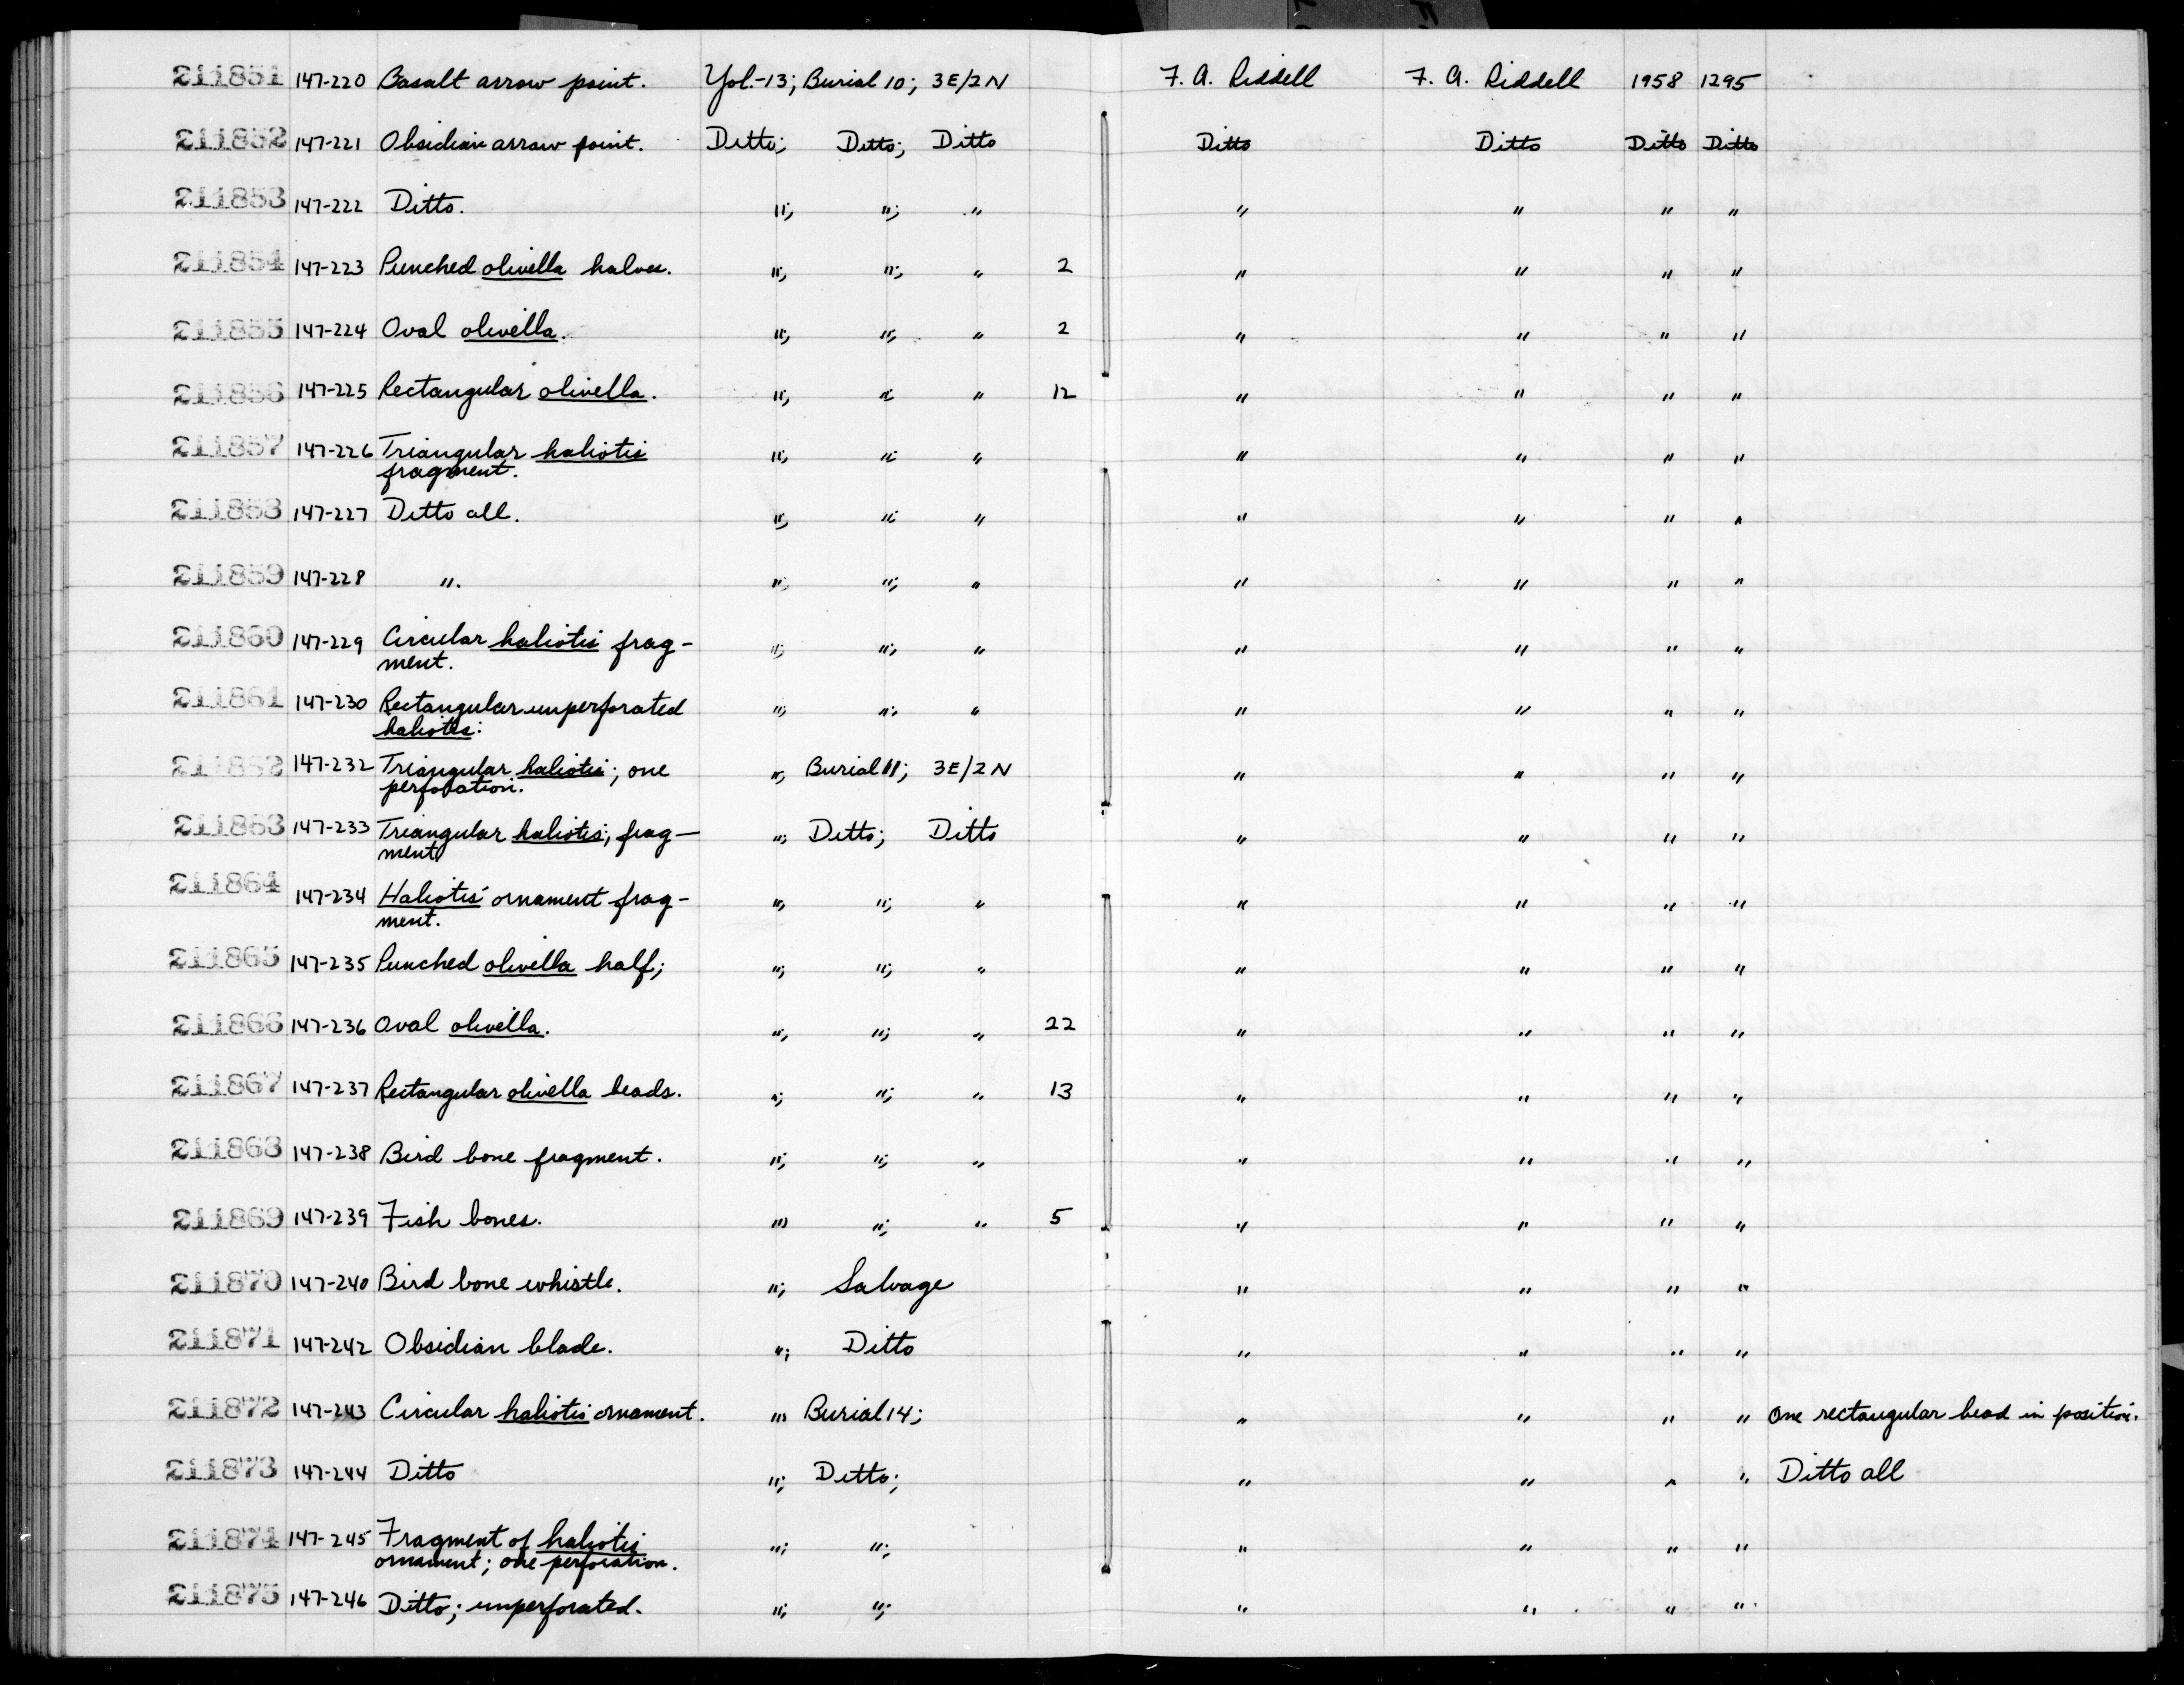 211851 147-220 Basalt arrow point. Yol.-13; Burial 10; 3E/2N F. A. Riddell F. A. Riddell 1958 1295
211852 147-221 Obsidian arrow point. Ditto; Ditto; Ditto Ditto Ditto Ditto Ditto
211853 147-222 Ditto. "; "; " " " " "
211854 147-223 Punched olivella halves. "; "; " 2 " " " "
211855 147-224 Oval olivella. "; "; " 2 " " " "
211856 147-225 Rectangular olivella. "; "; " 12 " " " "
211857 147-226 Triangular haliotis "; "; " " " " "
fragment.
211858 147-227 Ditto all. "; "; " " " " "
211859 147-228 ". "; "; " " " " "
211860 147-229 Circular haliotis frag- "; "; " " " " "
ment.
211861 147-230 Rectangular unperforated "; "; " " " " "
haliotis:
211862 147-232 Triangular haliotis; one "; Burial 11; 3E/2N " " " "
perforation.
211863 147-233 Triangular haliotis; frag- "; Ditto; Ditto " " " "
ment
211864 147-234 Haliotis ornament frag- "; "; " " " " "
ment.
211865 147-235 Punched olivella half; "; "; " " " " "
211866 147-236 Oval olivella. "; "; " 22 " " " "
211867 147-237 Rectangular olivella beads. "; "; " 13 " " " "
211868 147-238 Bird bone fragment. "; "; " " " " "
211869 147-239 Fish bones. "; "; " 5 " " " "
211870 147-240 Bird bone whistle. "; Salvage " " " "
211871 147-242 Obsidian blade. "; Ditto " " " "
211872 147-243 Circular haliotis ornament. "; Burial 14; " " " " One rectangular bead in position.
211873 147-244 Ditto "; Ditto; " " " " Ditto all
211874 147-245 Fragment of haliotis "; "; " " " "
ornament; one perforation.
211875 147-246 Ditto; unperforated. "; "; " " " "